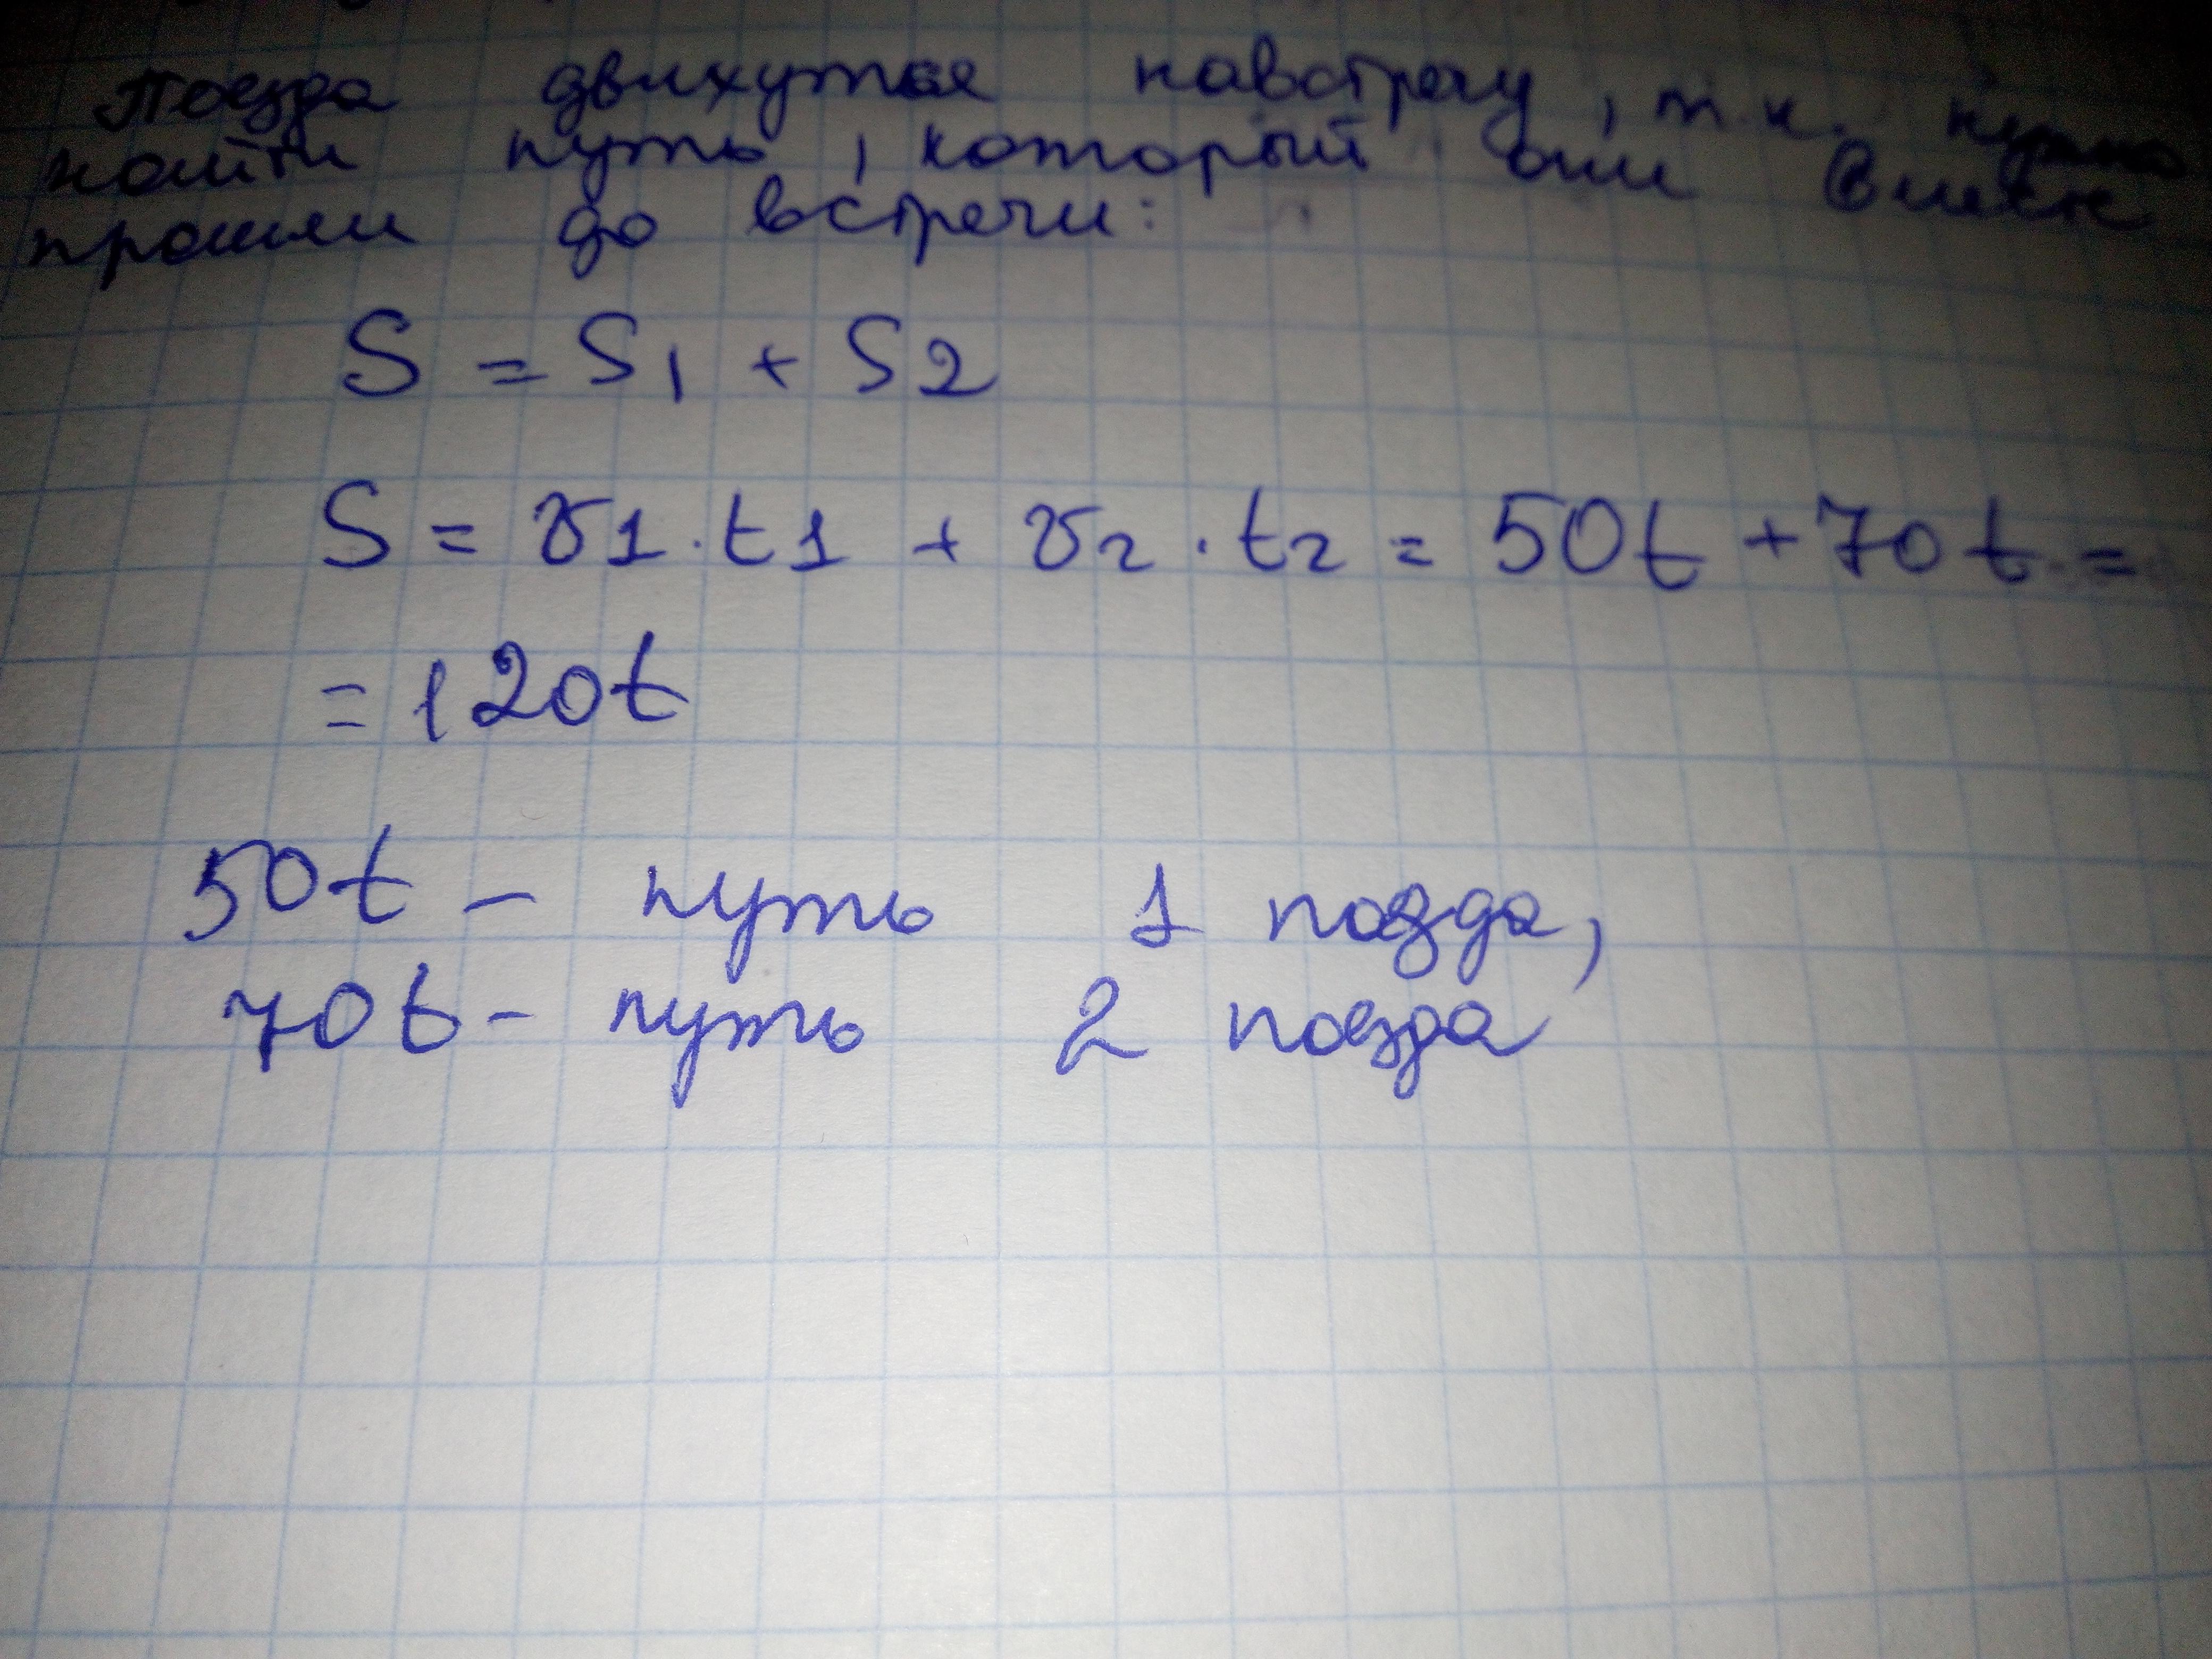 Поезда движутся навстречу, т.к. нужно
найти путь, который они вместе
прошли до встречи:
S = S1 + S2
S = v1 · t1 + v2 · t2 = 50t + 70t =
= 120t
50t - путь 1 поезда,
70t - путь 2 поезда